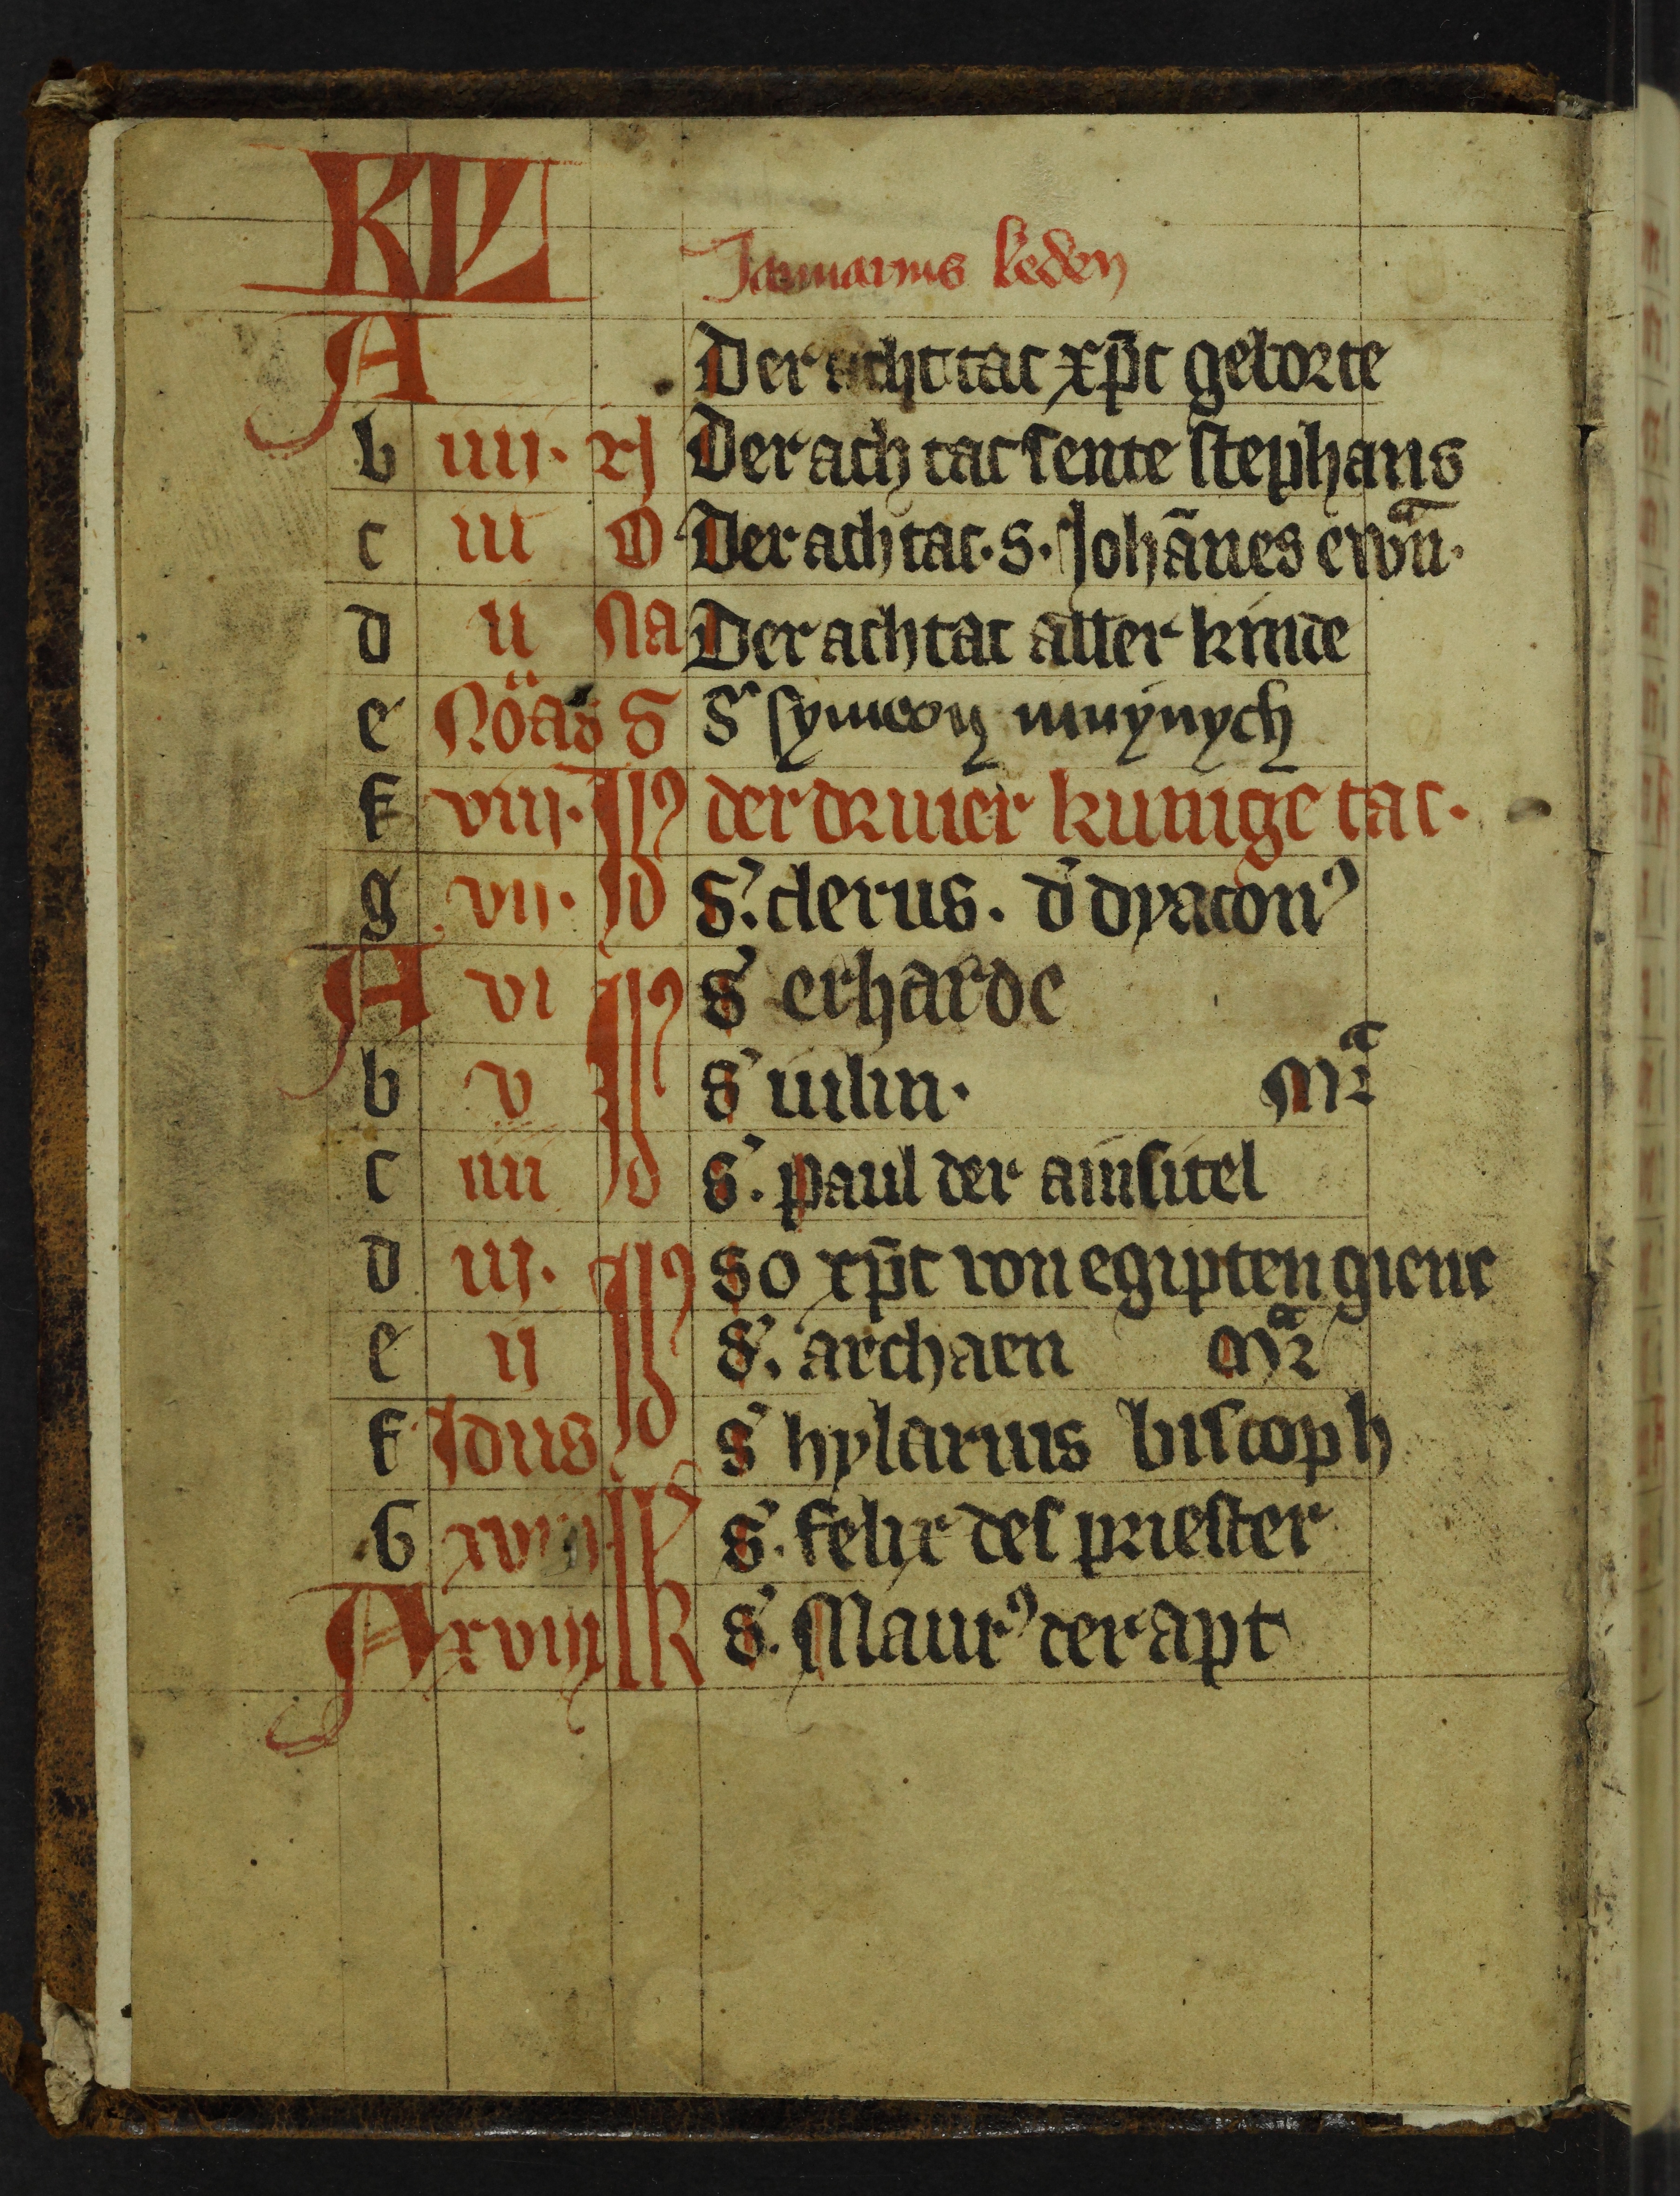 KL
Januarius leden
A Der acht tac xp̄c geborte
b iiij. xj Der ach tac sente stephans
c iii O Der ach tac. S. Johā̄nes ewāñ.
d ii Na Der ach tac aller kinde
e Nōas S S' symeon muynych
f viij. der drivier kunige tac.
g vij. Id S'. clerus. d' dyacon⁹
A vi S' erharde
b v S' iulin. Mr̄a
c iiii Id S'. paul der ainsitel
d iij. So xp̄c von egipten gienc
e ij S'. archaen Mr̄a
f Idus Id S' hylarius biscoph
G S'. felix des priester
A xviij lk S'. Maur⁹ der apt